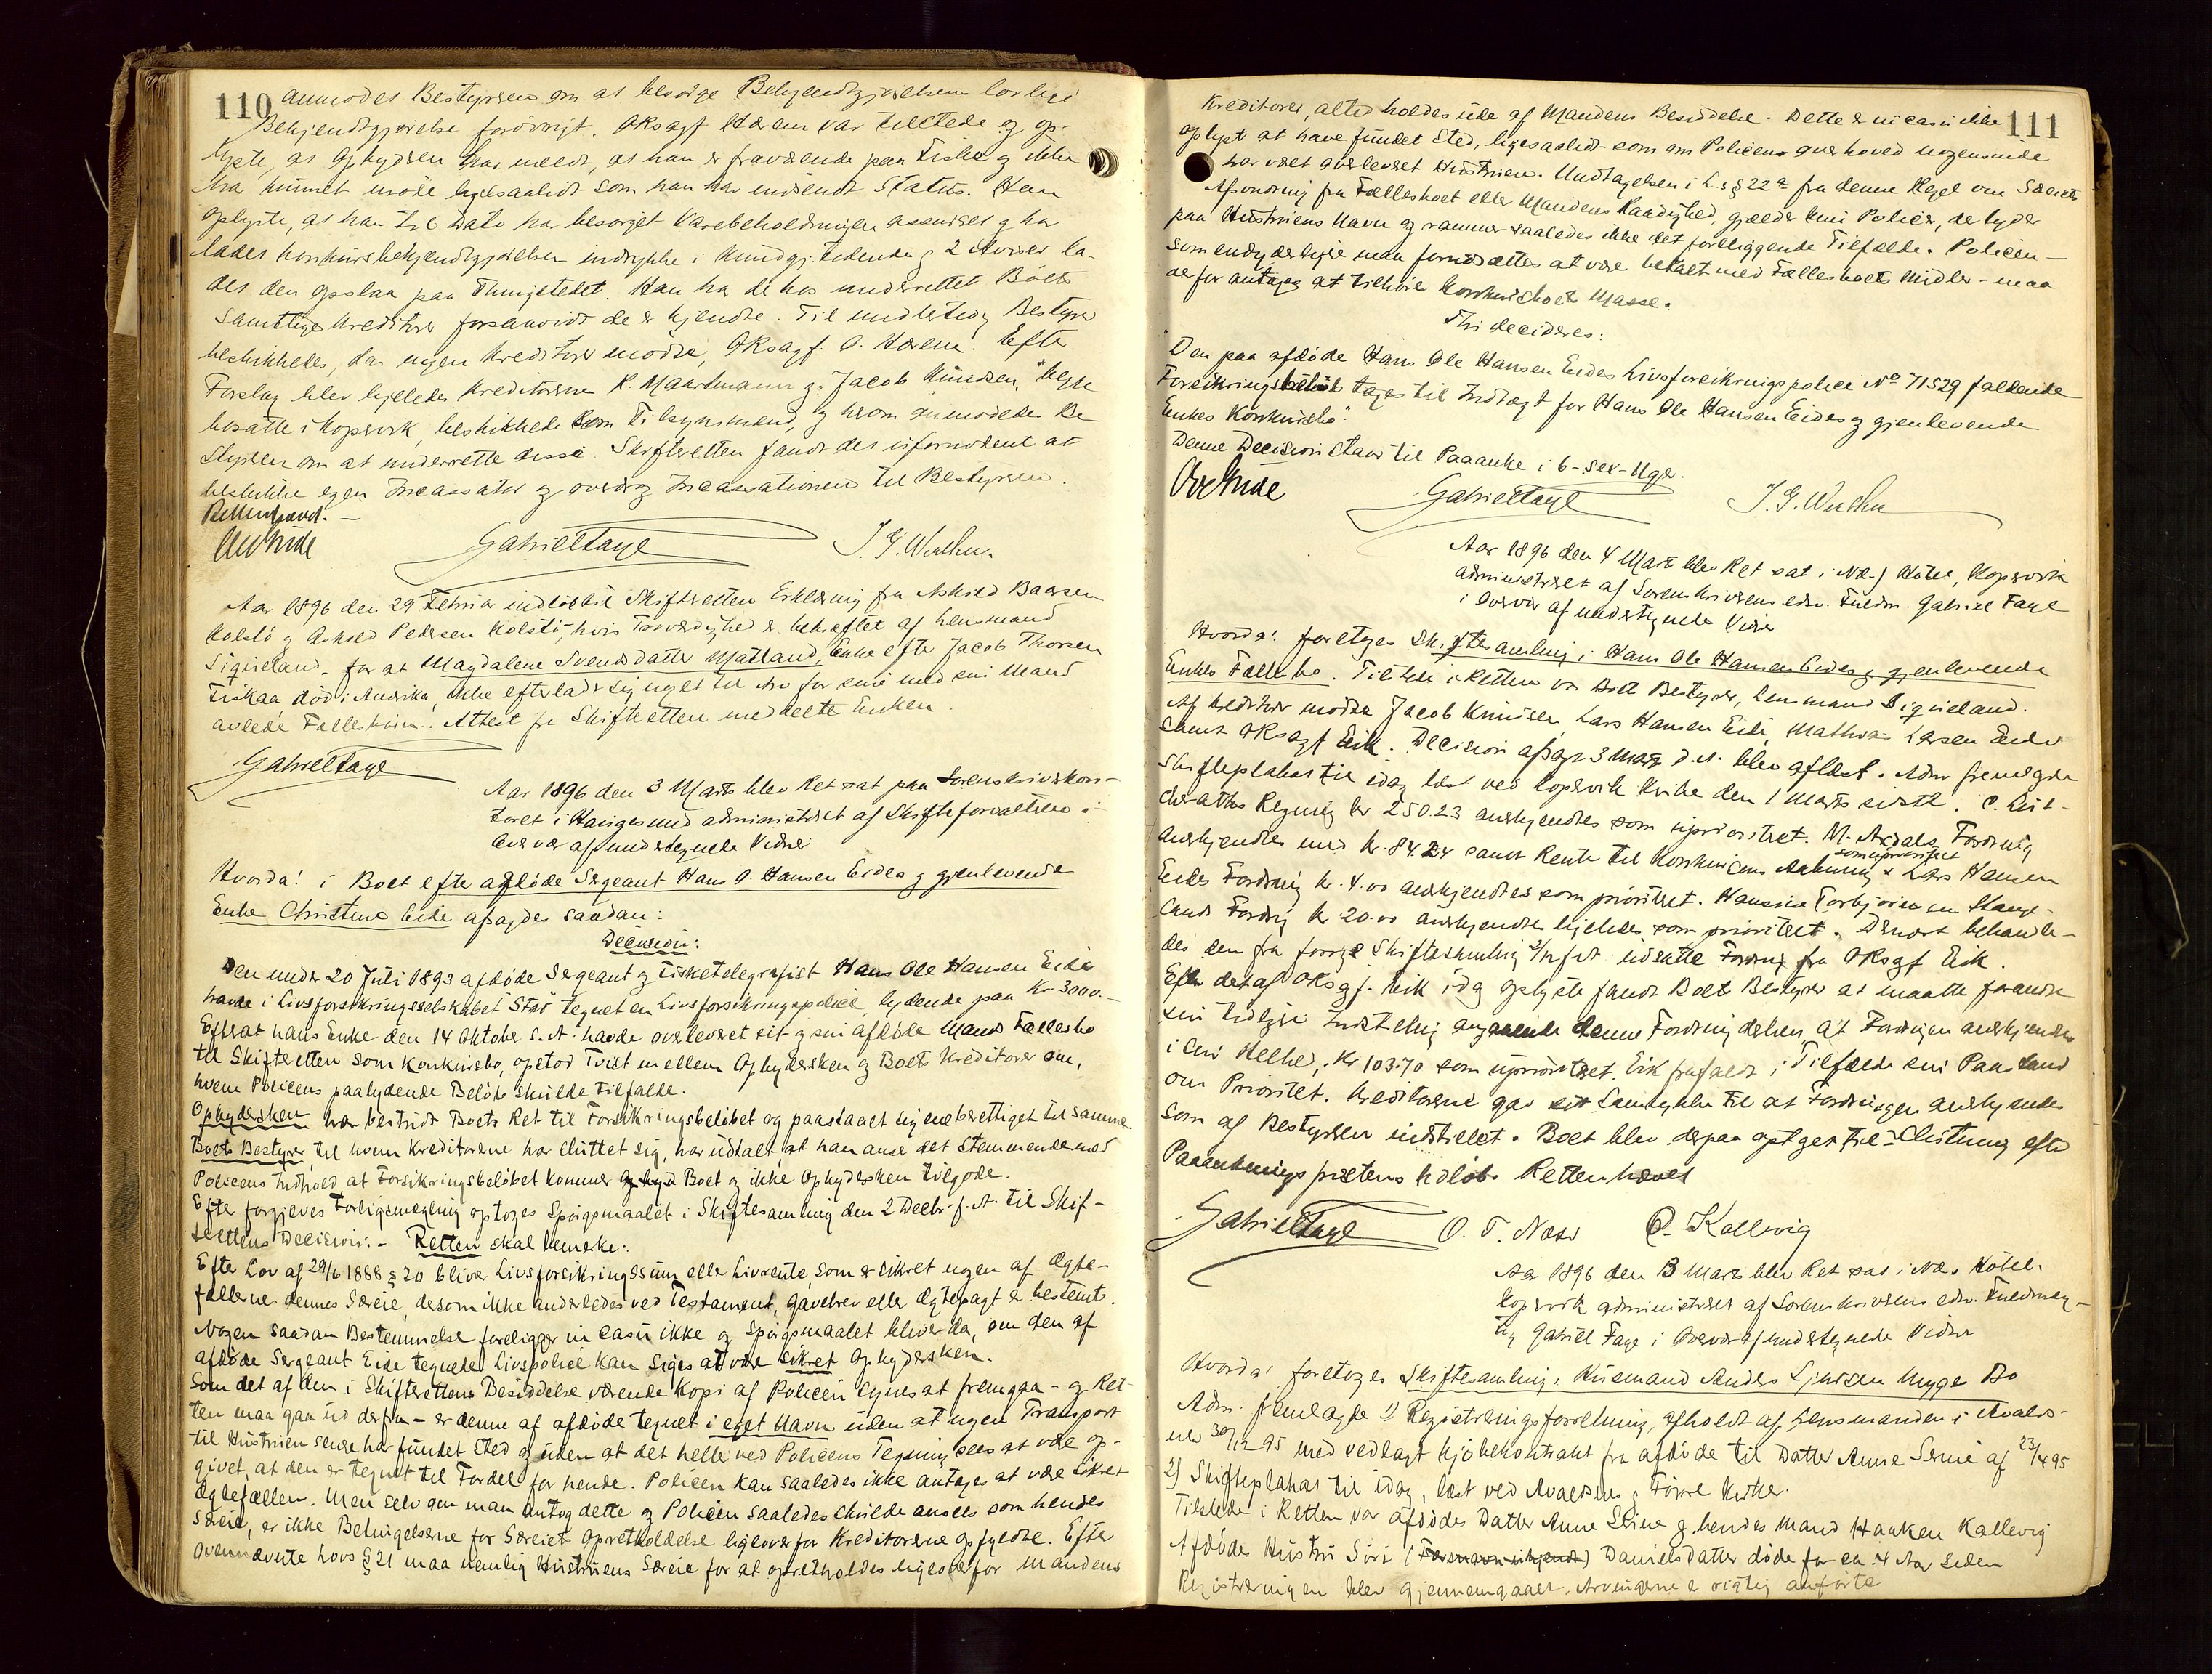 110 anmodet Bestyreren om at besørge Bekjendtgjørelsen lovlig
Bekjendtgjørelse forøvrigt. OKsagf Hærem var tilstede og op-
lyste, at Ophyderen har meldt, at han er fraværende paa Fiske og ikke
har kunnet møde ligesaalidt som han har indsendt Status. Han
oplyste, at han til Dato har besørget Varebeholdningen assureret og har
ladet konkursbekjendtgjørelsen indrykke i Kundgj.tidende og 2 Aviser la-
det den opslaa paa Thingstedet. Han har de hos underrettet Boets
samtlige Kreditorer forsaavidt de er kjendte. Til midlertidig Bestyrer
beskikkedes, da ingen Kreditorer mødte, OKsagf. O. Hærem. Efter
Forslag blev ligeledes Kreditorerne R. Maartmann og Jacob Knudsen, begge
bosatte i Kopervik, beskikkede som Tilsynsmænd, og hvorom anmodedes Be-
styreren om at underrette disse. Skifteretten fandt det ufornødent at
beskikke egen Incassator og overdrog Incassationen til Bestyreren.
Retten hævet. –
Gabriel Faye J. G. Wulhn.
Aar 1896 den 29 Februar indløb til Skifteretten Erklæring fra Askild Baarsen
Kolstø og Askild Pedersen Kolstø, hvis Troværdighed er bekræftet af Lensmand
Siqveland – for at Magdalene Svendsdatter Matland, Enke efter Jacob Thorsen
Fiskaa død i Amerika, ikke efterlader sig noget til Arv for sine med sin Mand
avlede Fællesbørn. Attest fra Skifteretten meddeelte Enken.
Gabriel Faye
Aar 1896 den 3 Marts blev Ret sat paa Sorenskriverkon-
toret i Haugesund administreret af Skifteforvalteren i
Overvær af undertegnede Vidner
Hvorda! i Boet efter afdøde Sergeant Hans O. Hansen Eides og gjenlevende
Enke Christine Eide afsagdes saadan:
Decision:
Den under 20 Juli 1893 afdøde Sergeant og Fisketelegrafist Hans Ole Hansen Eide
havde i Livsforsikringsselskabet "Star" tegnet en Livsforsikringspolice, lydende paa Kr. 3000. –
Efterat hans Enke den 14 Oktober s. A. havde overleveret sit og sin afdøde Mands Fællesbo
til Skifteretten som Konkursbo, opstod Tvist mellem Ophydersken og Boets Kreditorer om,
hvem Policens paalydende Beløb skulde tilfalde.
Ophydersken har bestridt Boets Ret til Forsikringsbeløbet og paastaaet sig eneberettiget til samme
Boets Bestyrer, til hvem Kreditorerne har sluttet sig, har udtalt, at han anser det stemmende med
Policens Indhold at Forsikringsbeløbet kommer Boet og ikke Ophydersken tilgode.
Efter forgjæves Forligsmægling optoges Spørgsmaalet i Skiftesamling den 2 Decbr. f. A. til Skif-
terettens Decision. – Retten skal bemerke:
Efter Lov af 29/6 1888 § 20 bliver Livsforsikringssum eller Livrente, som er sikret nogen af Ægte-
fællerne dennes Særeie, dersom ikke anderledes ved Testament, Gavebrev eller Ægtepagt er bestemt.
Nogen saadan Bestemmelse foreligger in casu ikke og Spørgsmaalet bliver da, om den af
afdøde Sergeant Eide tegnede Livspolice kan siges at være sikret Ophydersken.
Som det af den i Skifterettens Besiddelse værende Kopi af Policen synes at fremgaa – og Ret-
ten maa gaa ud derfra – er denne af afdøde tegnet i eget Navn uden at nogen Transport
til Hustruen senere har fundet Sted og uden at det heller ved Policens Tegning sees at være op-
givet, at den er tegnet til Fordel for hende. Policen kan saaledes ikke antages at være sikret
Ægtefællen. Men selv om man antog dette og Policen saaledes skulde ansees som hendes
Særeie, er ikke Betingelserne for Særeiets Opretholdelse ligeoverfor Kreditorerne opfyldte. Efter
ovennævnte Lovs § 21 maa nemlig Hustruens Særeie for at opretholdes ligeoverfor Mandens
111
Kreditorer, altid holdes ude af Mandens Besiddelse. Dette er in casu ikke
oplyst at have fundet Sted, ligesaalidt som om Policen overhoved nogensinde
har været overleveret Hustruen. Undtagelsen i L. s § 22 a fra denne Regel om Særeiets
Afsondring fra Fællesboet eller Mandens Raadighed, gjælder kun Policer, der lyder
paa Hustruens Navn og rammer saaledes ikke det foreliggende Tilfælde. Policen –
som endyderligere maa forudsættes at være betalt med Fællesboets Midler – maa
derfor antages at tilhøre Konkursboets Masse.
Thi decideres:
Den paa afdøde Hans Ole Hansen Eides Livsforsikringspolice No 71529 faldende
Forsikringsbeløb tages til Indtægt for Hans Ole Hansen Eides og gjenlevende
Enkes Konkursbo".
Denne Decision staar til Paaanke i 6 – sex – Uger.
Gabriel Faye J. G. Wulhn
Aar 1896 den 4 Marts blev Ret sat i Næs Hotel, Kopervik
administreret af Sorenskriverens edsv. Fuldm. Gabriel Faye
i Overvær af undertegnede Vidner
Hvorda! foretoges Skiftesamling i Hans Ole Hansen Eides og gjenlevende
Enkes Fællesbo. Tilstede i Retten var Boets Bestyrer, Lensmand Siqveland.
Af Kreditorer mødte Jacob Knudsen, Lars Hansen Eide, Mathias Larsen Eide
samt OKsagf Eik. Decision afsagt 3 Marts d. A. blev oplæst. Adm. fremlagde
Skifteplakat til idag læst ved Kopervik Kirke den 1 Marts sidstl. C.
Regning kr 250.23 anerkjendtes som uprioriteret. M. Aadals Fordring
anerkjendtes med kr. 84.24 samt Rente til Konkursens Aabning som uprioriteret. Lars Hansen
Eides Fordring kr. 4.00 anerkjendtes som prioriteret. Hansine Torbjørnsen Stange-
lands Fordring kr 20.00 anerkjendtes ligeledes som prioriteret. Dernæst behandle-
des den fra forrige Skiftesamling udsatte Fordring fra OKsagf Eik.
Efter det af OKsagf. Eik idag oplyste fandt Boets Bestyrer at maatte forandre
sin tidligere Indstilling angaaende denne Fordring derhen, at Fordringen anerkjendes
i sin Helhed, kr 103.70 som uprioriteret. Eik frafaldt i Tilfælde sin Paastand
om Prioritet. Kreditorerne gav sit Samtykke til at Fordringen anerkjendes
som af Bestyreren indstillet. Boet blev derpaa optaget til Slutning efter
Paaankningsfristens Udløb. Retten hævet
Gabriel Faye O. T. Næss O. Kallevig
Aar 1896 den 13 Marts blev Ret sat i Næs Hotel.
Kopervik administreret af Sorenskriverens edsv. Fuldmæg-
tig Gabriel Faye i Overvær af undertegnede Vidner
Hvorda! foretoges Skiftesamling i Husmand Anders Bo
Adm. fremlagde 1) Registreringsforretning, afholdt af Lensmanden i Avalds-
nes 30/12 95 med vedlagt Kjøbekontrakt fra afdøde til Datter Anne Serine af 23/4 95
2) Skifteplakat til idag, læst ved Avaldsnes og Førre Kirker.
Tilstede i Retten var afdødes Datter Anne Serine og hendes Mand Haaken Kallevig
Afdødes Hustru Siri Danielsdatter døde for ca. 4 Aar siden
Registreringen blev gjennemgaaet. Arvingerne er rigtig anførte